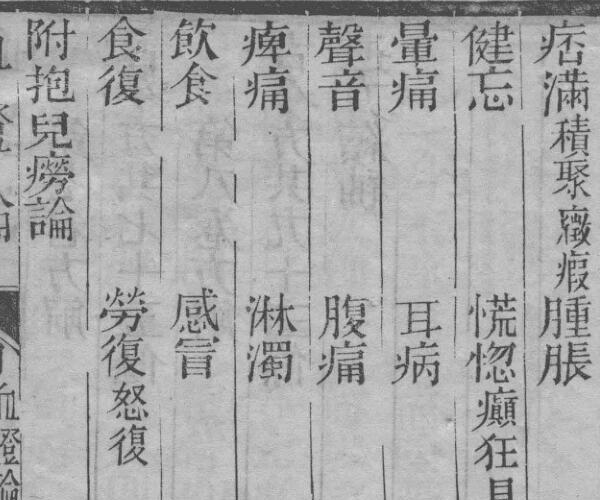 痞滿積聚癥瘕 腫脹
健忘 慌惚癲狂見
暈痛 耳病
聲音 腹痛
痺痛 淋濁
飲食 感冒
食復 勞復怒復
附抱兒癆論
血證論